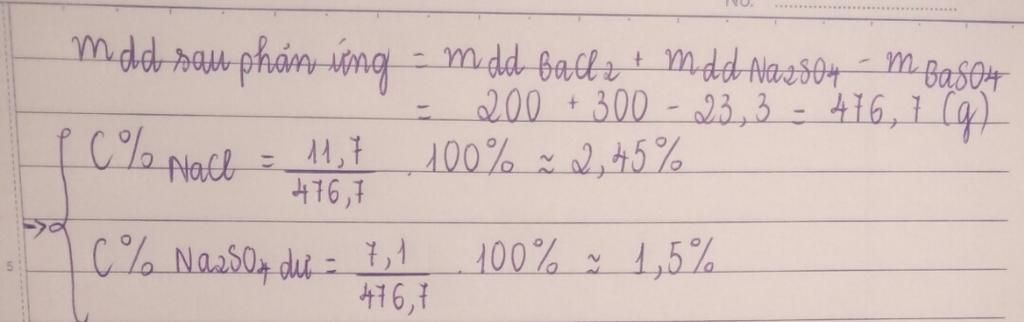 No.
m dd sau phản ứng = m dd BaCl2 + m dd Na2SO4 - m BaSO4
= 200 + 300 - 23,3 = 476,7 (g)
C% NaCl = 11,7/476,7 . 100% ≈ 2,45%
→ {
C% Na2SO4 dư = 7,1/476,7 . 100% ≈ 1,5%
5